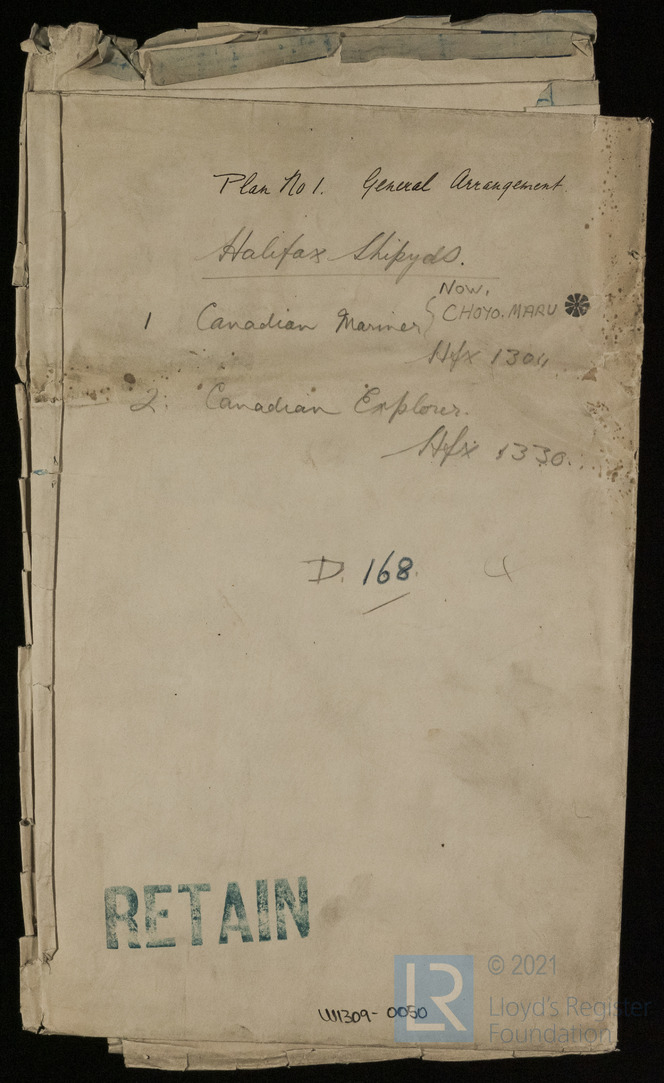 Plan No 1. General Arrangement.
Halifax Shipyds.
Now,
1 Canadian Mariner { CHOYO. MARU
Hfx 1304
2. Canadian Explorer.
Hfx 1330.
D. 168.
RETAIN
W1309-0050
LR
© 2021
Lloyd's Register
Foundation